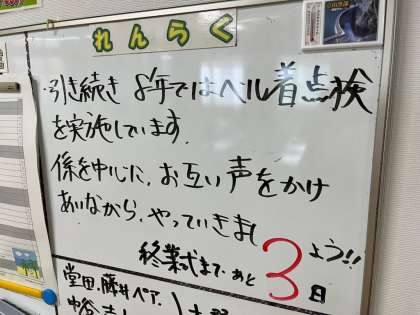 れんらく
引き続き 8年ではヘル着点検
を実施しています.
係を中心に、お互い声をかけ
あいながら、やっていきましょう!!
終業式まで あと 3日
堂田、藤井ペア、